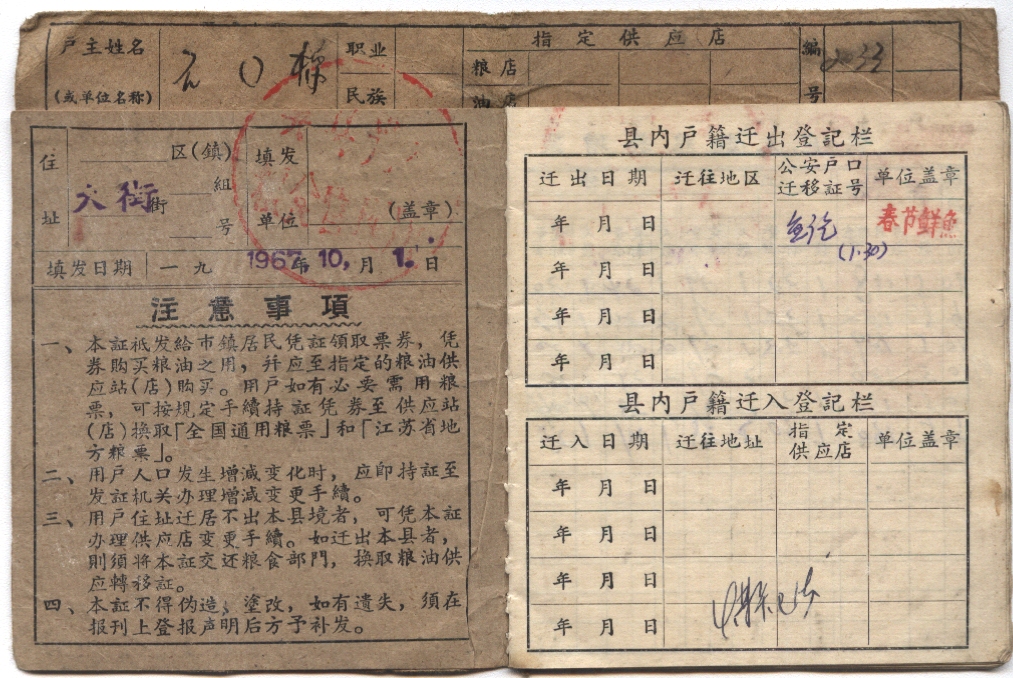 戶主姓名
(或单位名称)
职业
民族
指定供应店
粮店
油店
編
号
2033
住
址
区(鎮)
組
大街街
号
填发
单位
(盖章)
填发日期
一九1967年10,月1.日
注意事項
一、本証祗发給市鎮居民凭証領取票券，凭
券购买粮油之用，幷应至指定的粮油供
应站(店)购买。用戶如有必要需用粮
票，可按規定手續持証凭券至供应站
(店)換取「全国通用粮票」和「江苏省地
方粮票」。
二、用戶人口发生增減变化时，应卽持証至
发証机关办理增減变更手續。
三、用戶住址迁居不出本县境者，可凭本証
办理供应店变更手續。如迁出本县者，
則須将本証交还粮食部門，換取粮油供
应轉移証。
四、本証不得伪造、塗改，如有遺失，須在
报刊上登报声明后方予补发。
县内戶籍迁出登記栏
迁出日期 迁往地区 公安戶口迁移証号 单位盖章
年 月 日 春节鮮魚
(1.30)
年 月 日
年 月 日
年 月 日
县内戶籍迁入登記栏
迁入日期 迁往地址 指定供应店 单位盖章
年 月 日
年 月 日
年 月 日
年 月 日